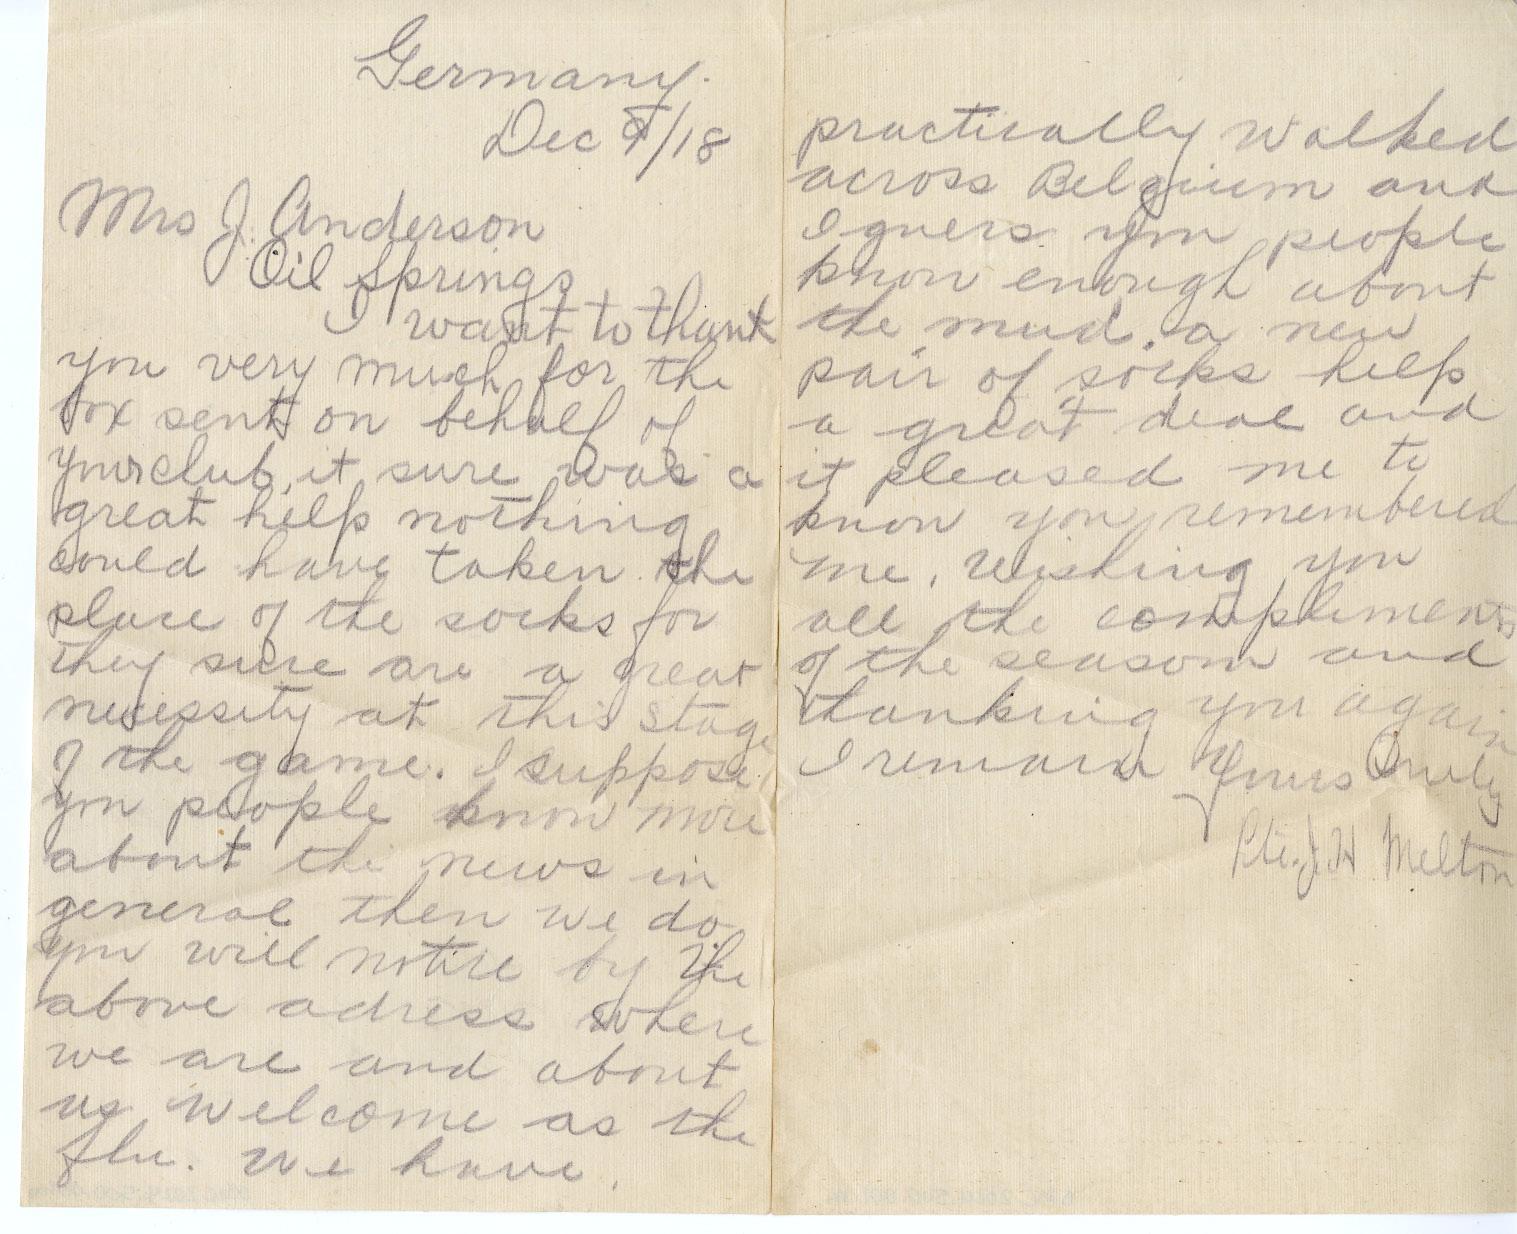 Germany.
Dec 9/18
Mrs J. Anderson
Oil Springs
I want to thank
you very much for the
box sent on behalf of
your club, it sure was a
great help nothing
could have taken the
place of the socks for
they sure are a great
necessity at this stage
of the game. I suppose
you people know more
about the news in
general then we do
you will notice by the
above adress where
we are and about
us welcome as the
flu. We have
practically walked
across Belgium and
I guess you people
know enough about
the mud. a new
pair of socks help
a great deal and
it pleased me to
know you remembered
me, Wishing you
all the compliments
of the season and
thanking you again
I remain Yours Truly
Pte. J. H Melton